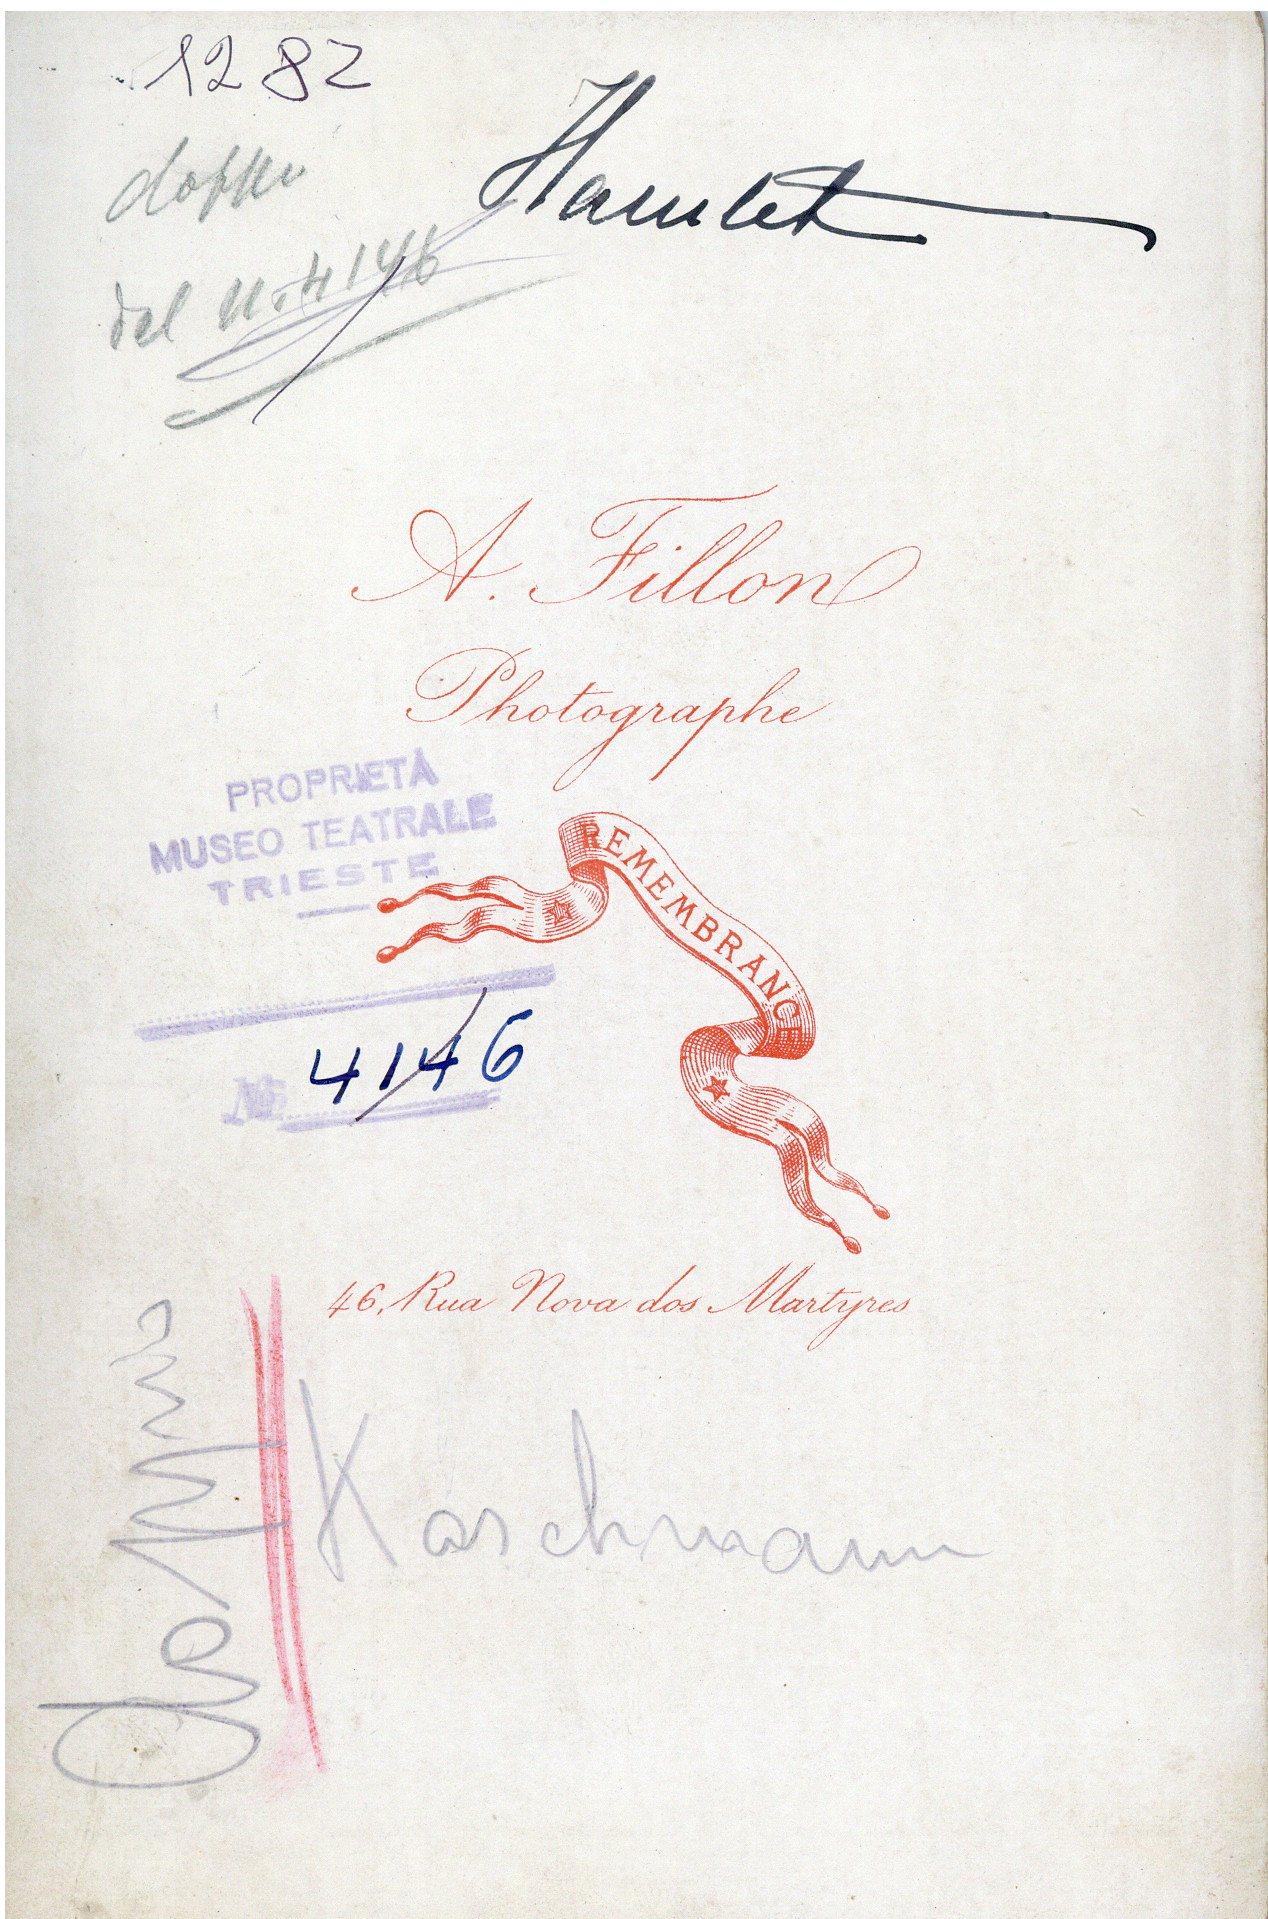 1282
Hamlet
doppio
del n. 4146
A. Fillon
Photographe
PROPRIETÀ
MUSEO TEATRALE
TRIESTE
REMEMBRANCE
No 4146
46, Rua Nova dos Martyres
doppio
Kaschmann